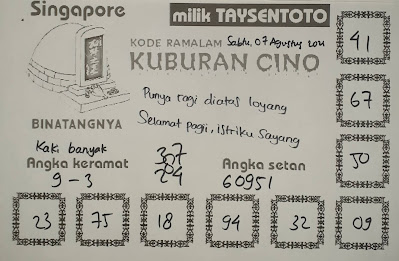 Singapore
milik TAYSENTOTO
KODE RAMALAM Sabtu, 07 Agustus 2021
KUBURAN CINO
41
Punya ragi diatas loyang
67
Selamat pagii, istriku Sayang
BINATANGNYA
Kaki banyak
50
Angka keramat
Angka setan
9 - 3
204
60951
23 75 18 94 32 09